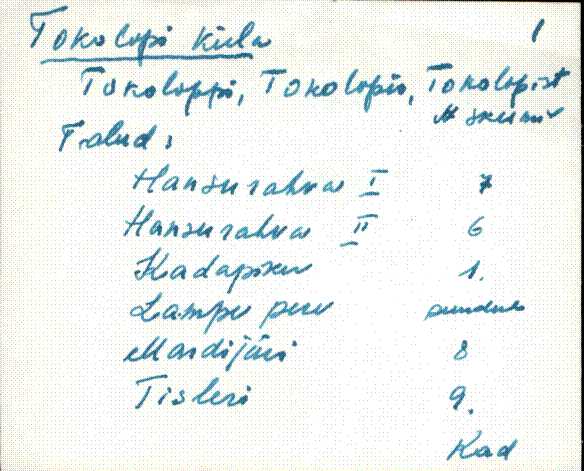 Tokolopi küla 1
Tokoloppi, Tokolopis, Tokolopist
Talud:
Hansurahva I 7
Hansurahva II 6
Kadapiku 1.
Lampu peru puudub
Mardijüri 8
Tisleri 9.
Kad